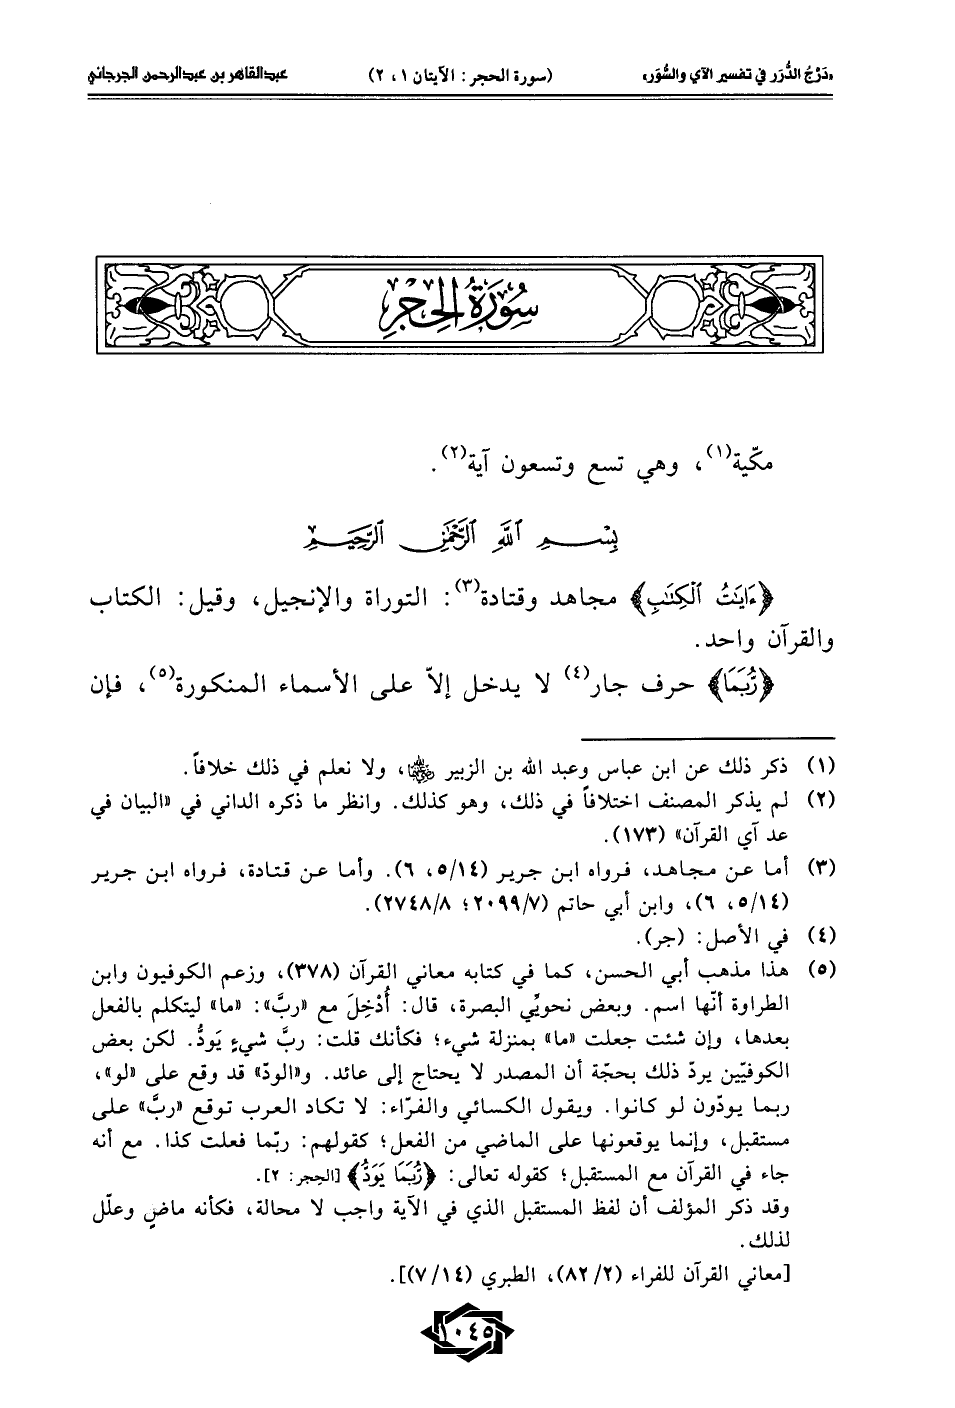 «دَرْجُ الدُّرَر في تفسير الآي والسُّوَر» (سورة الحجر: الآيتان ١، ٢) عبدالقاهر بن عبدالرحمن الجرجاني
سُورَةُ الحِجْرِ
مكّية(١)، وهي تسع وتسعون آية(٢).
بِسْمِ ٱللَّهِ ٱلرَّحْمَٰنِ ٱلرَّحِيمِ
﴿ءَايَٰتُ ٱلْكِتَٰبِ﴾ مجاهد وقتادة(٣): التوراة والإنجيل، وقيل: الكتاب
والقرآن واحد.
﴿رُّبَمَا﴾ حرف جار(٤) لا يدخل إلاّ على الأسماء المنكورة(٥)، فإن
(١) ذكر ذلك عن ابن عباس وعبد الله بن الزبير ﷺ، ولا نعلم في ذلك خلافاً.
(٢) لم يذكر المصنف اختلافاً في ذلك، وهو كذلك. وانظر ما ذكره الداني في «البيان في
عد آي القرآن» (١٧٣).
(٣) أما عن مجاهد، فرواه ابن جرير (٥/١٤، ٦). وأما عن قتادة، فرواه ابن جرير
(٥/١٤، ٦)، وابن أبي حاتم (٢٠٩٩/٧؛ ٢٧٤٨/٨).
(٤) في الأصل: (جر).
(٥) هذا مذهب أبي الحسن، كما في كتابه معاني القرآن (٣٧٨)، وزعم الكوفيون وابن
الطراوة أنّها اسم. وبعض نحويِّي البصرة، قال: أُدْخِلَ مع «ربَّ»: «ما» ليتكلم بالفعل
بعدها، وإن شئت جعلت «ما» بمنزلة شيء؛ فكأنك قلت: ربَّ شيءٍ يَودُّ. لكن بعض
الكوفيّين يردّ ذلك بحجّة أن المصدر لا يحتاج إلى عائد. و«الودّ» قد وقع على «لو»،
ربما يودّون لو كانوا. ويقول الكسائي والفرّاء: لا تكاد العرب توقع «ربَّ» على
مستقبل، وإنما يوقعونها على الماضي من الفعل؛ كقولهم: ربّما فعلت كذا. مع أنه
جاء في القرآن مع المستقبل؛ كقوله تعالى: ﴿رُّبَمَا يَوَدُّ﴾ [الحجر: ٢].
وقد ذكر المؤلف أن لفظ المستقبل الذي في الآية واجب لا محالة، فكأنه ماضٍ وعلّل
لذلك.
[معاني القرآن للفراء (٨٢/٢)، الطبري (٧/١٤)].
١٠٤٥